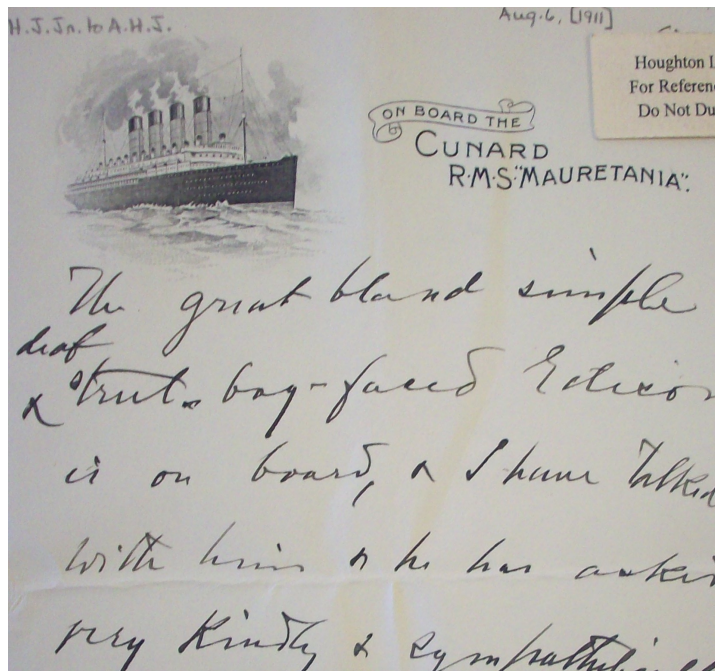 H.J.Jr. to A.H.J.
Aug. 6, [1911]
Houghton L
For Referenc
Do Not Du
ON BOARD THE
CUNARD
R.M.S. "MAURETANIA".
The great bland simple
deaf
& street-boy-faced Edison
is on board, & I have talked
with him & he has aski
very kindly & sympathi